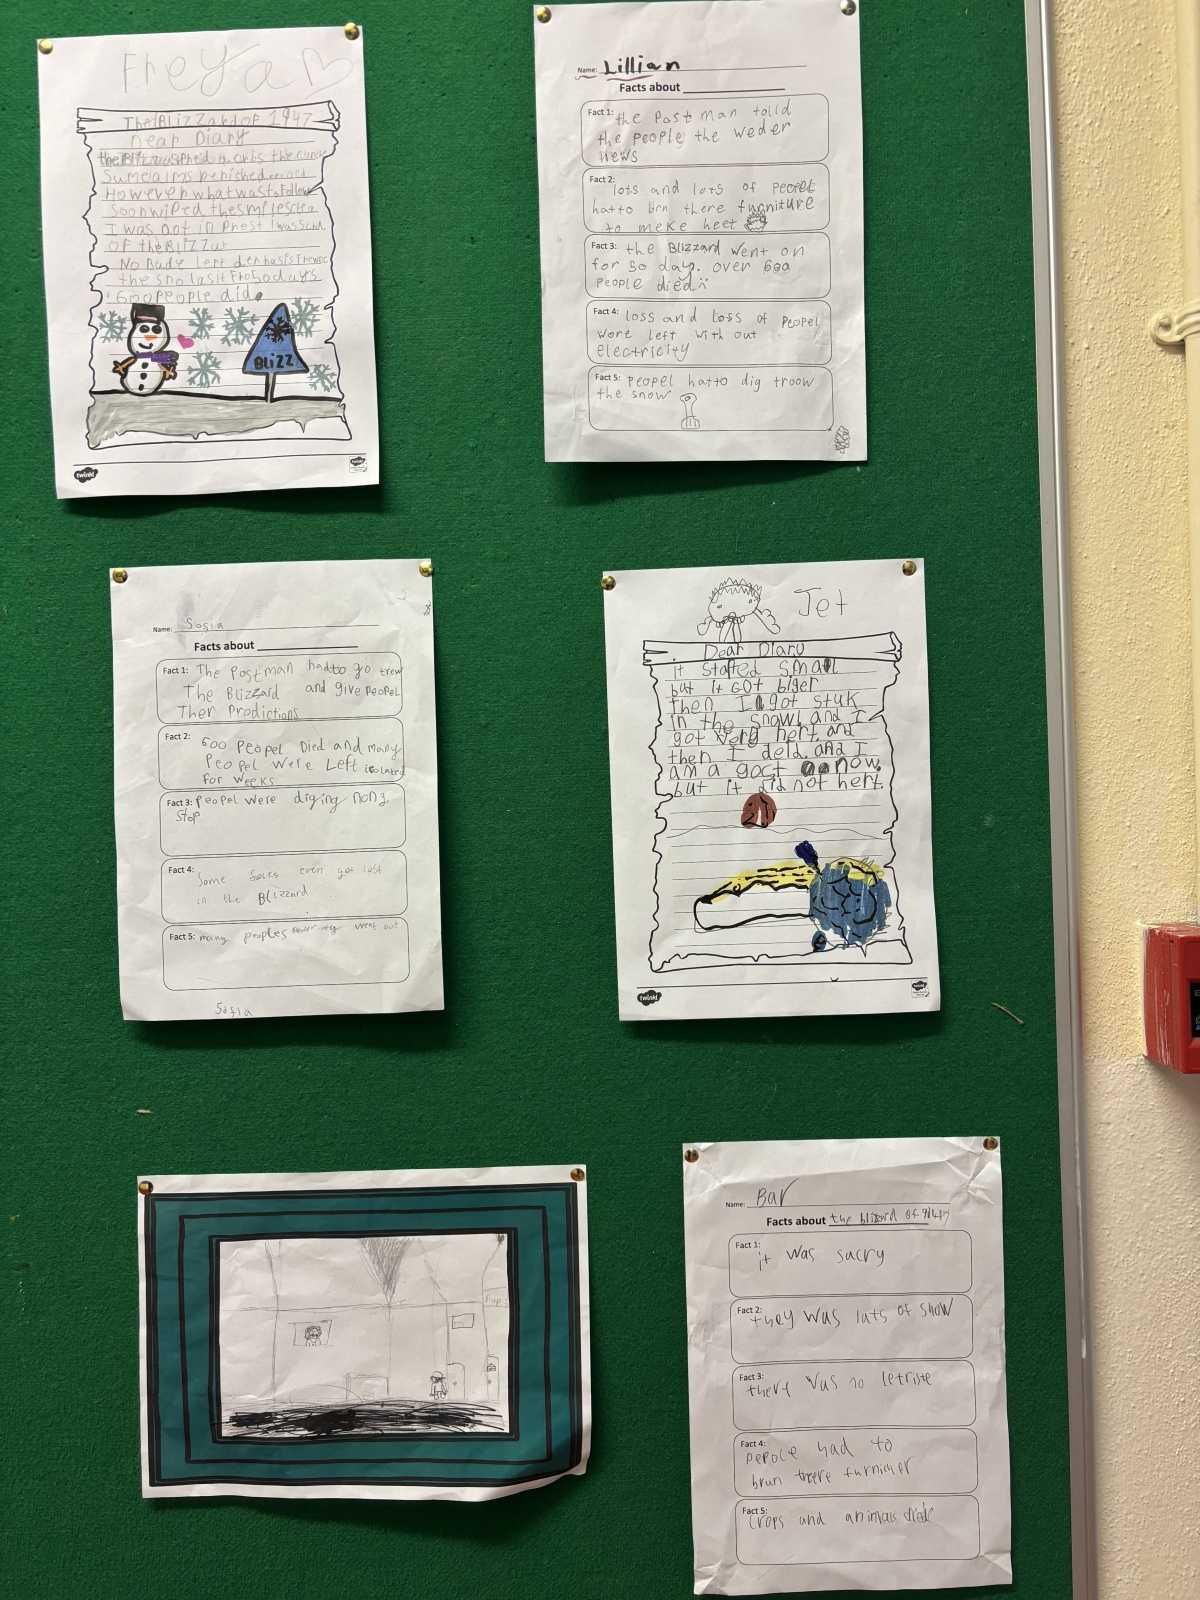 Freya
The Blizzard of 1947
Dear Diary
However what was to follow
soon wiped the smile
I was not in
OF the Blizzar
600 People did.
BLiZZ
twinkl
twinkl
Name: Lillian
Facts about
Fact 1: the Post man toild
the people the weder
news
Fact 2: lots and lots of Peopel
hatto brn there furniture
to meke heet
Fact 3: the Blizzard went on
for 50 day. over 600
People died
Fact 4: loss and loss of Peopel
wore left with out
electricity
Fact 5: Peopel hatto dig troow
the snow
Name: Sosia
Facts about
Fact 1: The Postman hadto go trew
The Blizzard and give Peopel
Ther Predictions
Fact 2: 600 Peopel Died and many
Peopel were Left isolated
for weeks
Fact 3: Peopel were diging non
stop
Fact 4: Some even got lost
in the Blizzard
Fact 5: many peoples went out
Sofia
Jet
Dear Diary
it started small
but it GOt biger
then I got stuk
in the snow. and I
got very hert. and
then I deid. and I
am a goct now.
but it did not hert.
twinkl
twinkl
Name: Bar
Facts about the blizard of
Fact 1: it was sacry
Fact 2: they was lats of snow
Fact 3: there was no letriste
Fact 4: pepole had to
brun there furnicher
Fact 5: crops and animals died